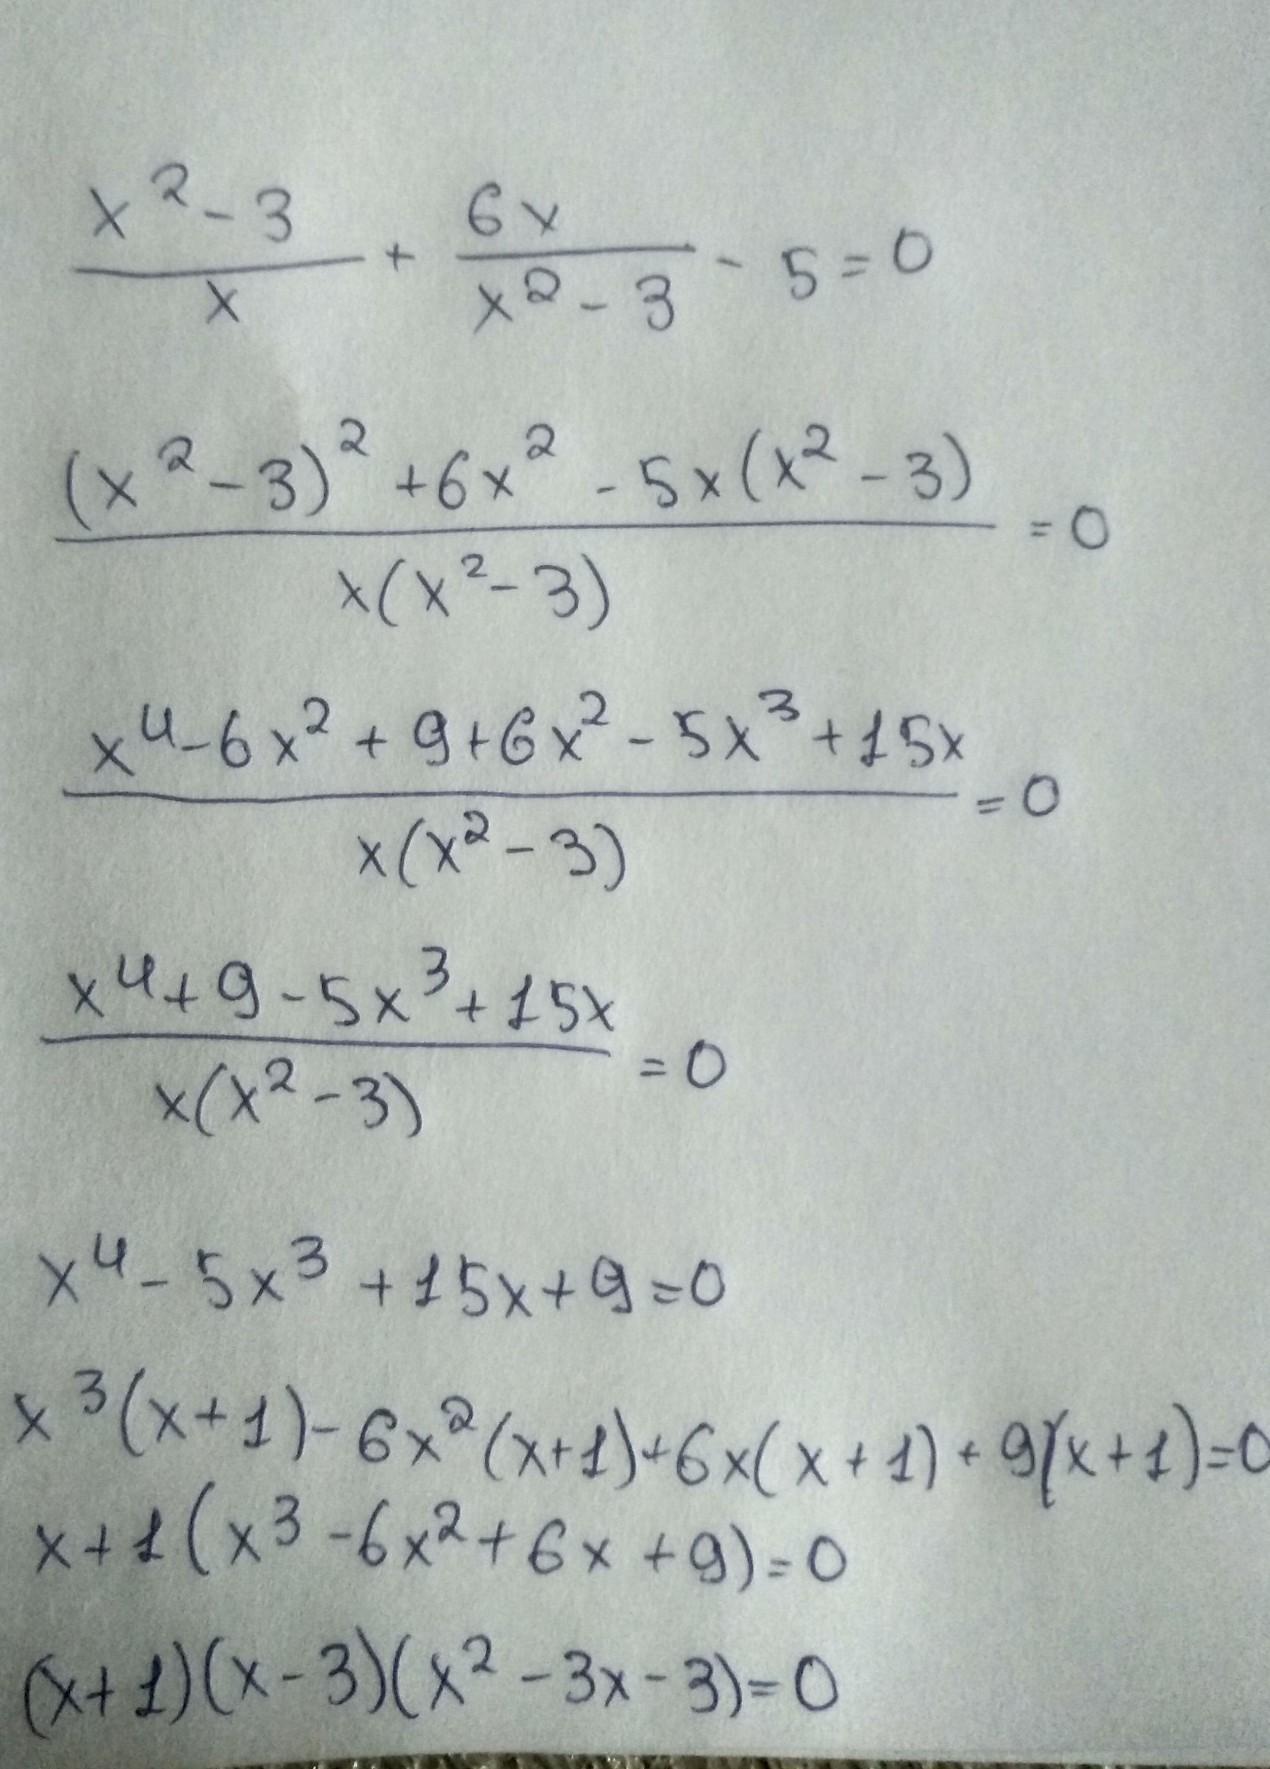 (x² - 3)/x + 6x/(x² - 3) - 5 = 0
((x² - 3)² + 6x² - 5x(x² - 3))/(x(x² - 3)) = 0
(x⁴ - 6x² + 9 + 6x² - 5x³ + 15x)/(x(x² - 3)) = 0
(x⁴ + 9 - 5x³ + 15x)/(x(x² - 3)) = 0
x⁴ - 5x³ + 15x + 9 = 0
x³(x + 1) - 6x²(x + 1) + 6x(x + 1) + 9(x + 1) = 0
x + 1(x³ - 6x² + 6x + 9) = 0
(x + 1)(x - 3)(x² - 3x - 3) = 0